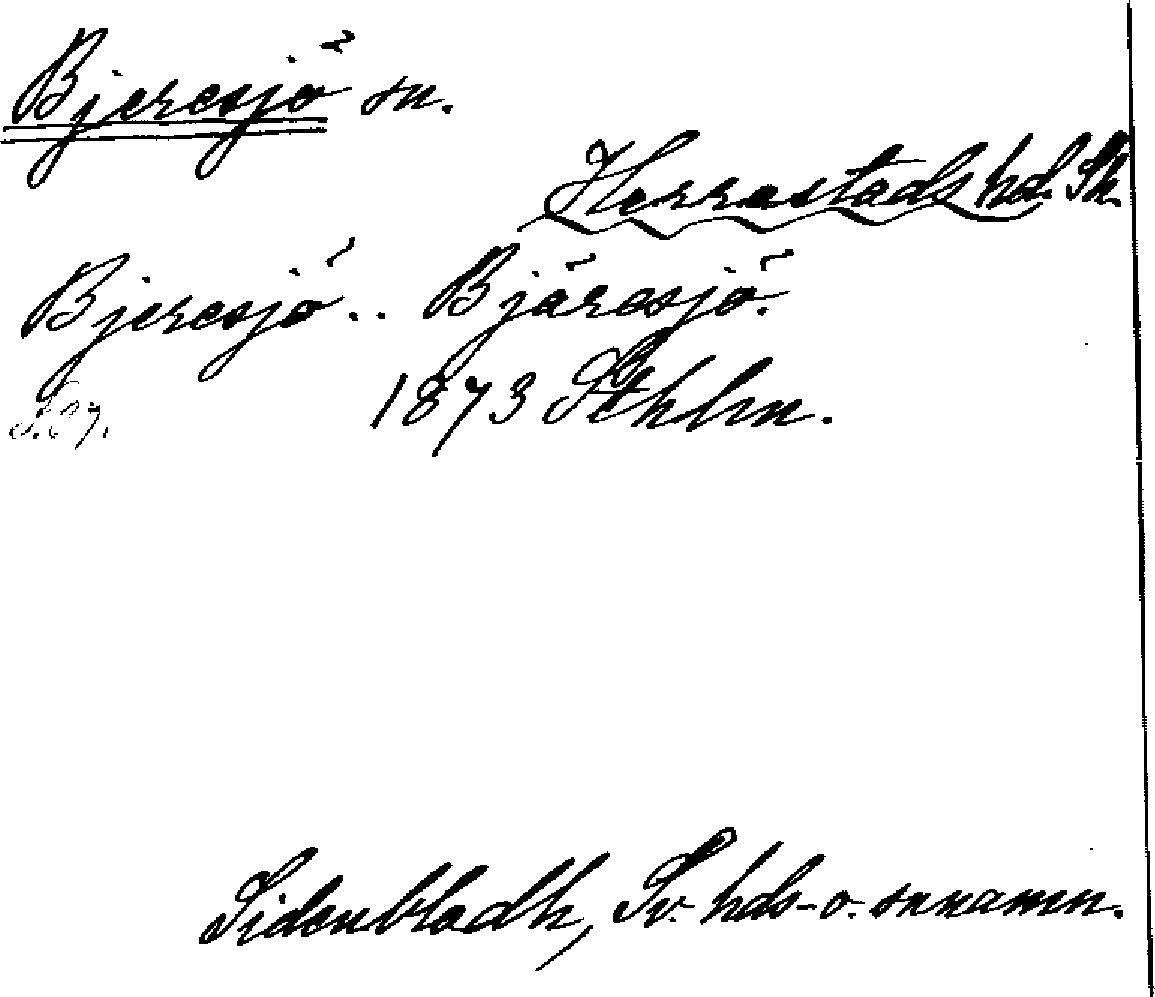 Bjeresjö sn.
Herrestads hd. Sk.
Bjeresjö.. Bjäresjö.
S. 67. 1873 Sthlm.
Sidenbladh, Sv. hds- o. snnamn.